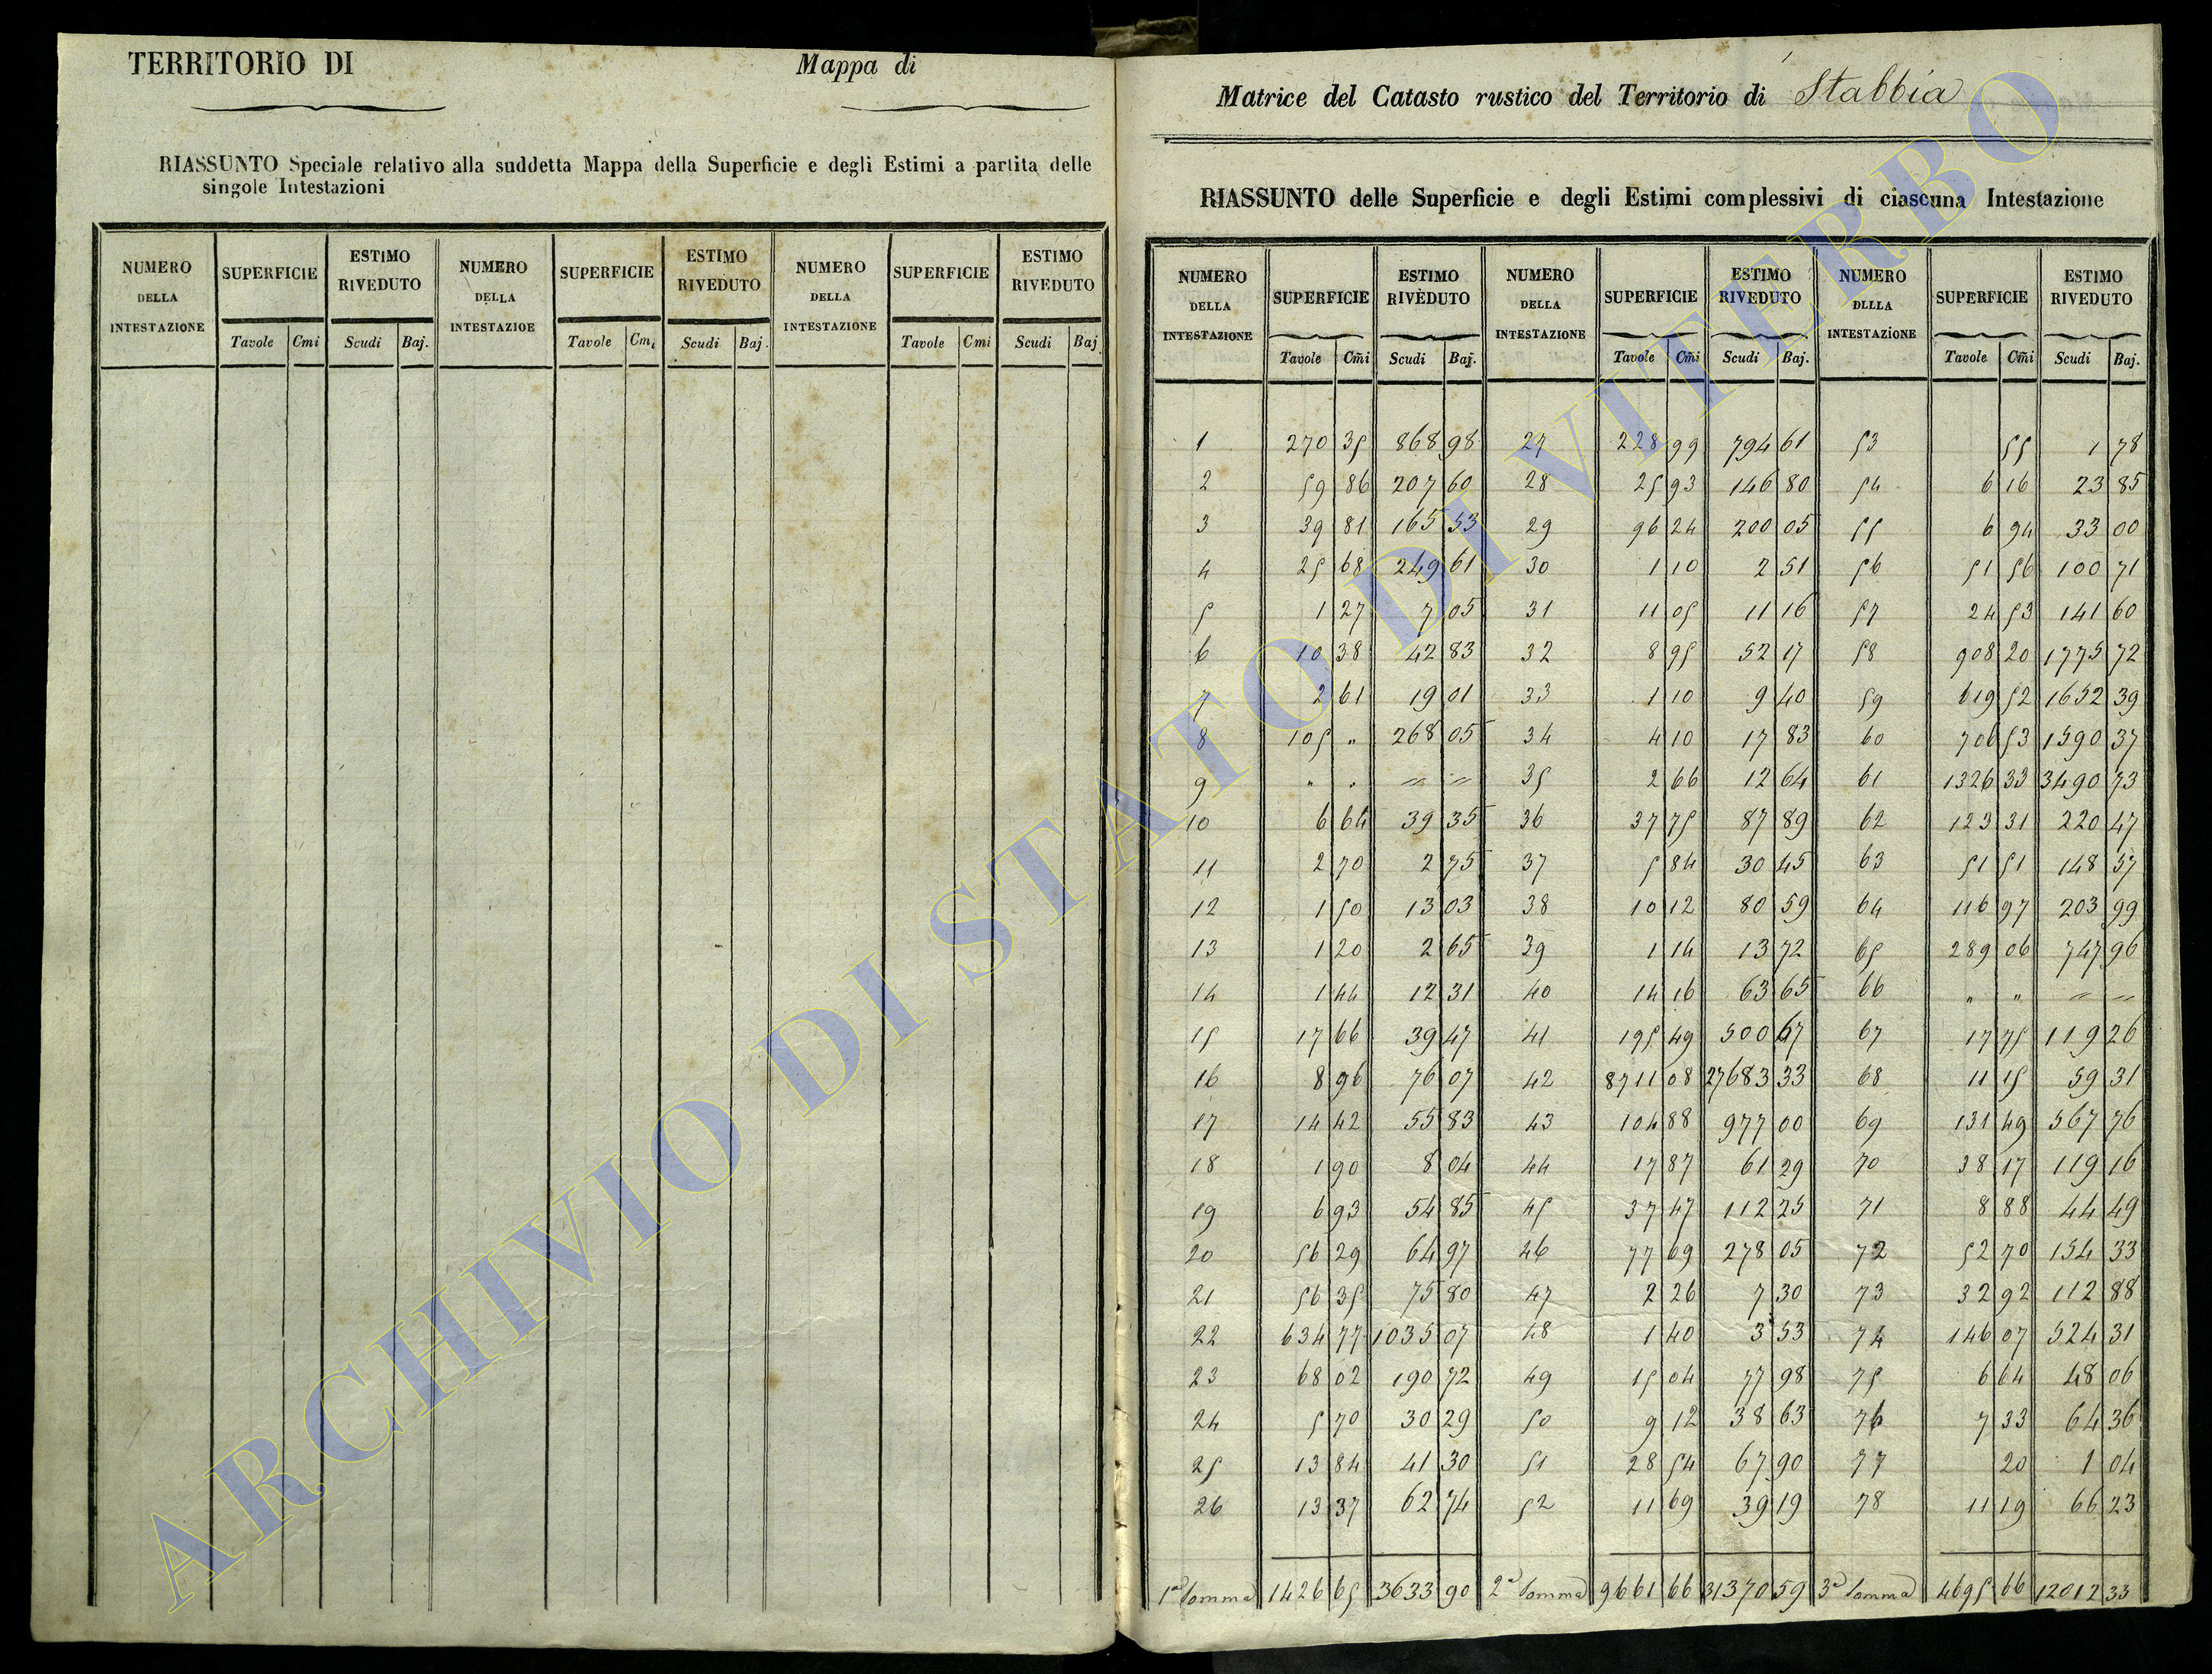 TERRITORIO DI Mappa di
RIASSUNTO Speciale relativo alla suddetta Mappa della Superficie e degli Estimi a partita delle
singole Intestazioni
NUMERO DELLA INTESTAZIONE SUPERFICIE ESTIMO RIVEDUTO NUMERO DELLA INTESTAZIOE SUPERFICIE ESTIMO RIVEDUTO NUMERO DELLA INTESTAZIONE SUPERFICIE ESTIMO RIVEDUTO
Tavole Cmi Scudi Baj. Tavole Cmi Scudi Baj. Tavole Cmi Scudi Baj.
Matrice del Catasto rustico del Territorio di Stabbia
RIASSUNTO delle Superficie e degli Estimi complessivi di ciascuna Intestazione
NUMERO DELLA INTESTAZIONE SUPERFICIE ESTIMO RIVEDUTO NUMERO DELLA INTESTAZIONE SUPERFICIE ESTIMO RIVEDUTO NUMERO DLLLA INTESTAZIONE SUPERFICIE ESTIMO RIVEDUTO
Tavole Cmi Scudi Baj. Tavole Cmi Scudi Baj. Tavole Cmi Scudi Baj.
1 270 35 868 98 27 228 99 794 61 53 55 1 78
2 59 86 207 60 28 25 93 146 80 54 6 16 23 85
3 39 81 165 53 29 96 24 200 05 55 6 94 33 00
4 25 68 249 61 30 1 10 2 51 56 51 56 100 71
5 1 27 7 05 31 11 05 11 16 57 24 53 141 60
6 10 38 42 83 32 8 95 52 17 58 908 20 1775 72
7 2 61 19 01 33 1 10 9 40 59 619 52 1652 39
8 105 " 268 05 34 4 10 17 83 60 706 53 1590 37
9 " " = = 35 2 66 12 64 61 1326 33 3490 73
10 6 64 39 35 36 37 75 87 89 62 123 31 220 47
11 2 70 2 75 37 5 84 30 45 63 51 51 148 57
12 1 50 13 03 38 10 12 80 59 64 116 97 203 99
13 1 20 2 65 39 1 14 13 72 65 289 06 747 96
14 1 44 12 31 40 14 16 63 65 66 " " = =
15 17 66 39 47 41 195 49 500 67 67 17 75 119 26
16 8 96 76 07 42 8711 08 27683 33 68 11 15 59 31
17 14 42 55 83 43 104 88 977 00 69 131 49 567 76
18 1 90 8 04 44 17 87 61 29 70 38 17 119 16
19 6 93 54 85 45 37 47 112 25 71 8 88 44 49
20 56 29 64 97 46 77 69 278 05 72 52 70 154 33
21 56 35 75 80 47 2 26 7 30 73 32 92 112 88
22 634 77 1035 07 48 1 40 3 53 74 146 07 524 31
23 68 02 190 72 49 15 04 77 98 75 6 64 48 06
24 5 70 30 29 50 9 12 38 63 76 7 33 64 36
25 13 84 41 30 51 28 54 67 90 77 20 1 04
26 13 37 62 74 52 11 69 39 19 78 11 19 66 23
1a Somma 1426 65 3633 90 2a Somma 9661 66 31370 59 3a Somma 4695 66 12012 33
ARCHIVIO DI STATO DI VITERBO